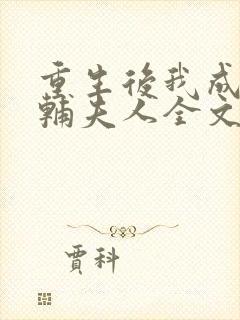 重生後我成
輔夫人全文
賈科